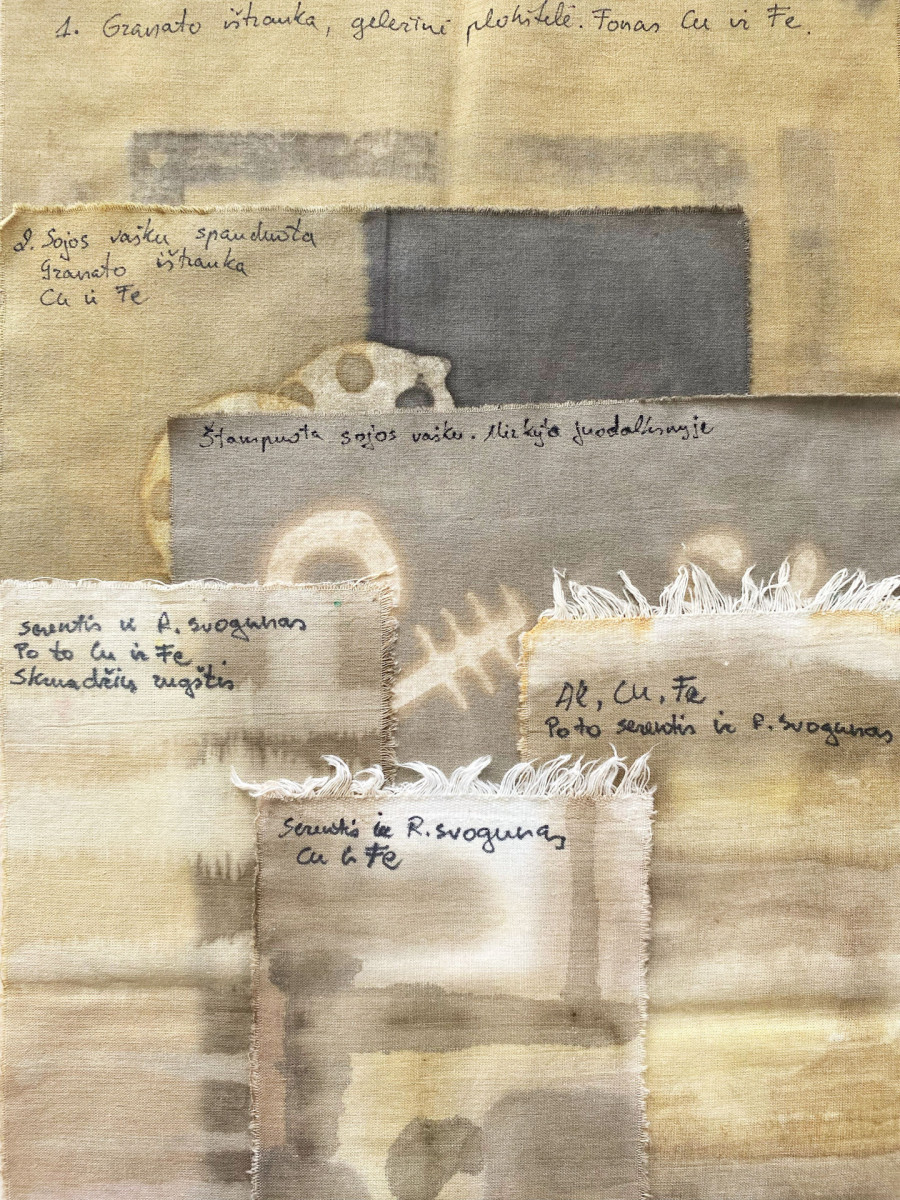 1. Granato ištrauka, geležinė plokštelė. Fonas Cu ir Fe.
2. Sojos vašku spauduota
Granato ištrauka
Cu ir Fe
Štampuota sojos vašku. Mirkyta juodalksnyje
serentis ir R. svogunas
Po to Cu ir Fe
Skruzdžių rugštis
Al, Cu, Fe
Po to serentis ir R. svogunas
Serentis ir R. svogunas
Cu ir Fe